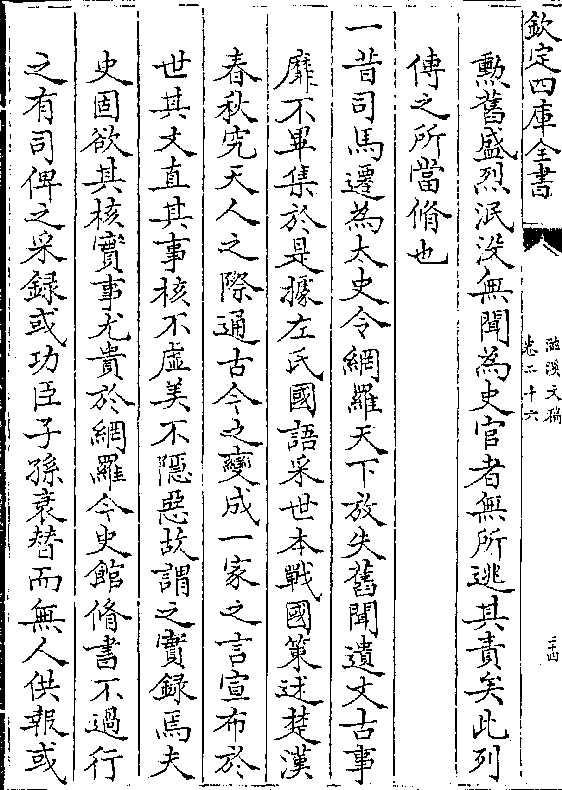 欽定四庫全書
滋溪文稿
卷二十六
二十四
勲舊盛烈泯没無聞為史官者無所逃其責矣此列
傳之所當脩也
一昔司馬遷為太史令網羅天下放失舊聞遺文古事
靡不畢集於是據左氏國語采世本戰國策述楚漢
春秋究天人之際通古今之變成一家之言宣布於
世其文直其事核不虛美不隠惡故謂之實録焉夫
史固欲其核實事尤貴於網羅今史館脩書不過行
之有司俾之采録或功臣子孫衰替而無人供報或